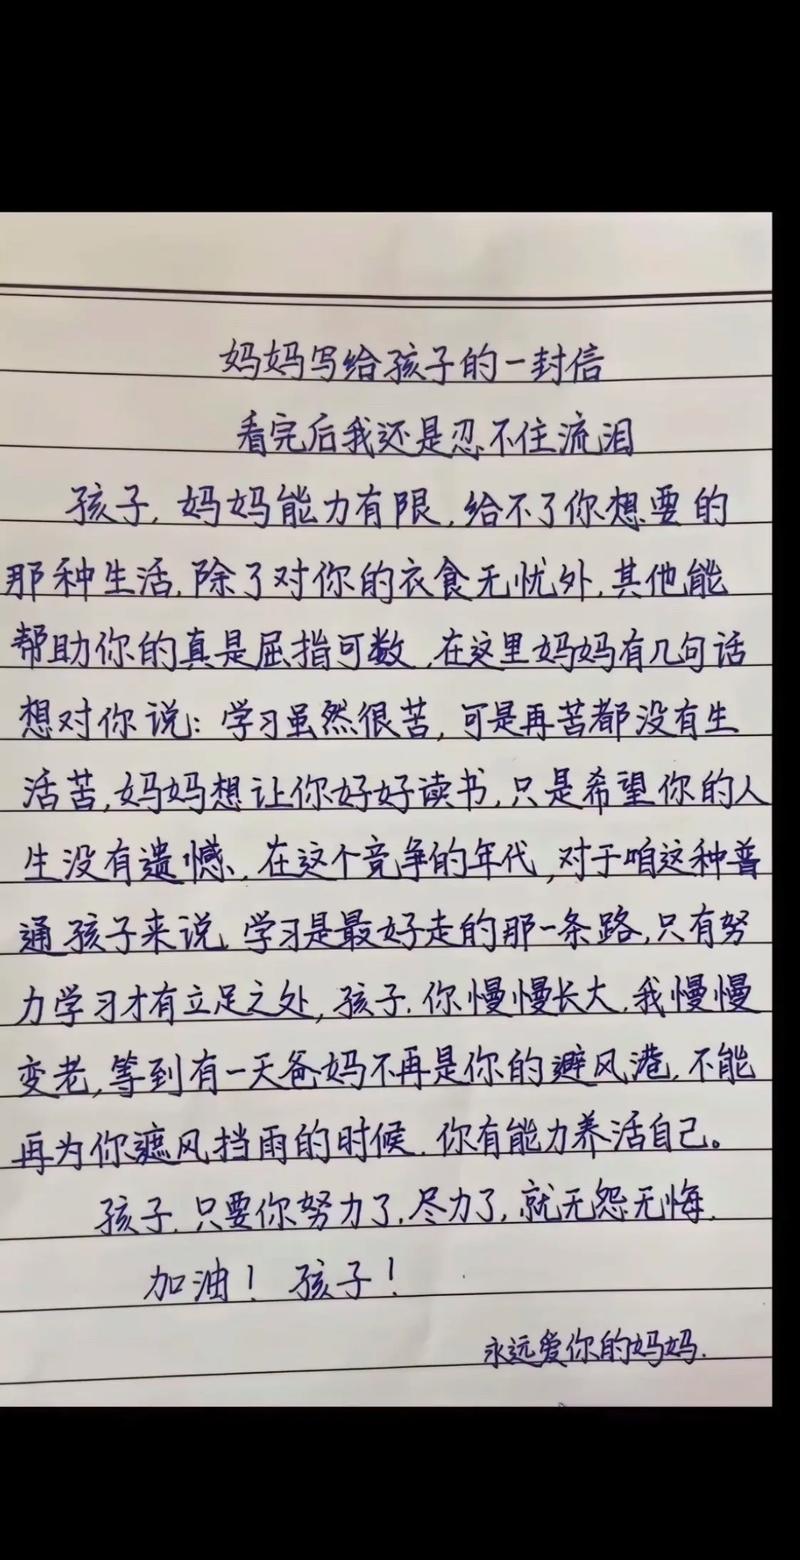 妈妈写给孩子的一封信
看完后我还是忍不住流泪
孩子,妈妈能力有限,给不了你想要的
那种生活,除了对你的衣食无忧外,其他能
帮助你的真是屈指可数,在这里妈妈有几句话
想对你说:学习虽然很苦,可是再苦都没有生
活苦,妈妈想让你好好读书,只是希望你的人
生没有遗憾,在这个竞争的年代,对于咱这种普
通孩子来说,学习是最好走的那一条路,只有努
力学习才有立足之处,孩子,你慢慢长大,我慢慢
变老,等到有一天爸妈不再是你的避风港,不能
再为你遮风挡雨的时候,你有能力养活自己。
孩子,只要你努力了,尽力了,就无怨无悔,
加油!孩子!
永远爱你的妈妈.